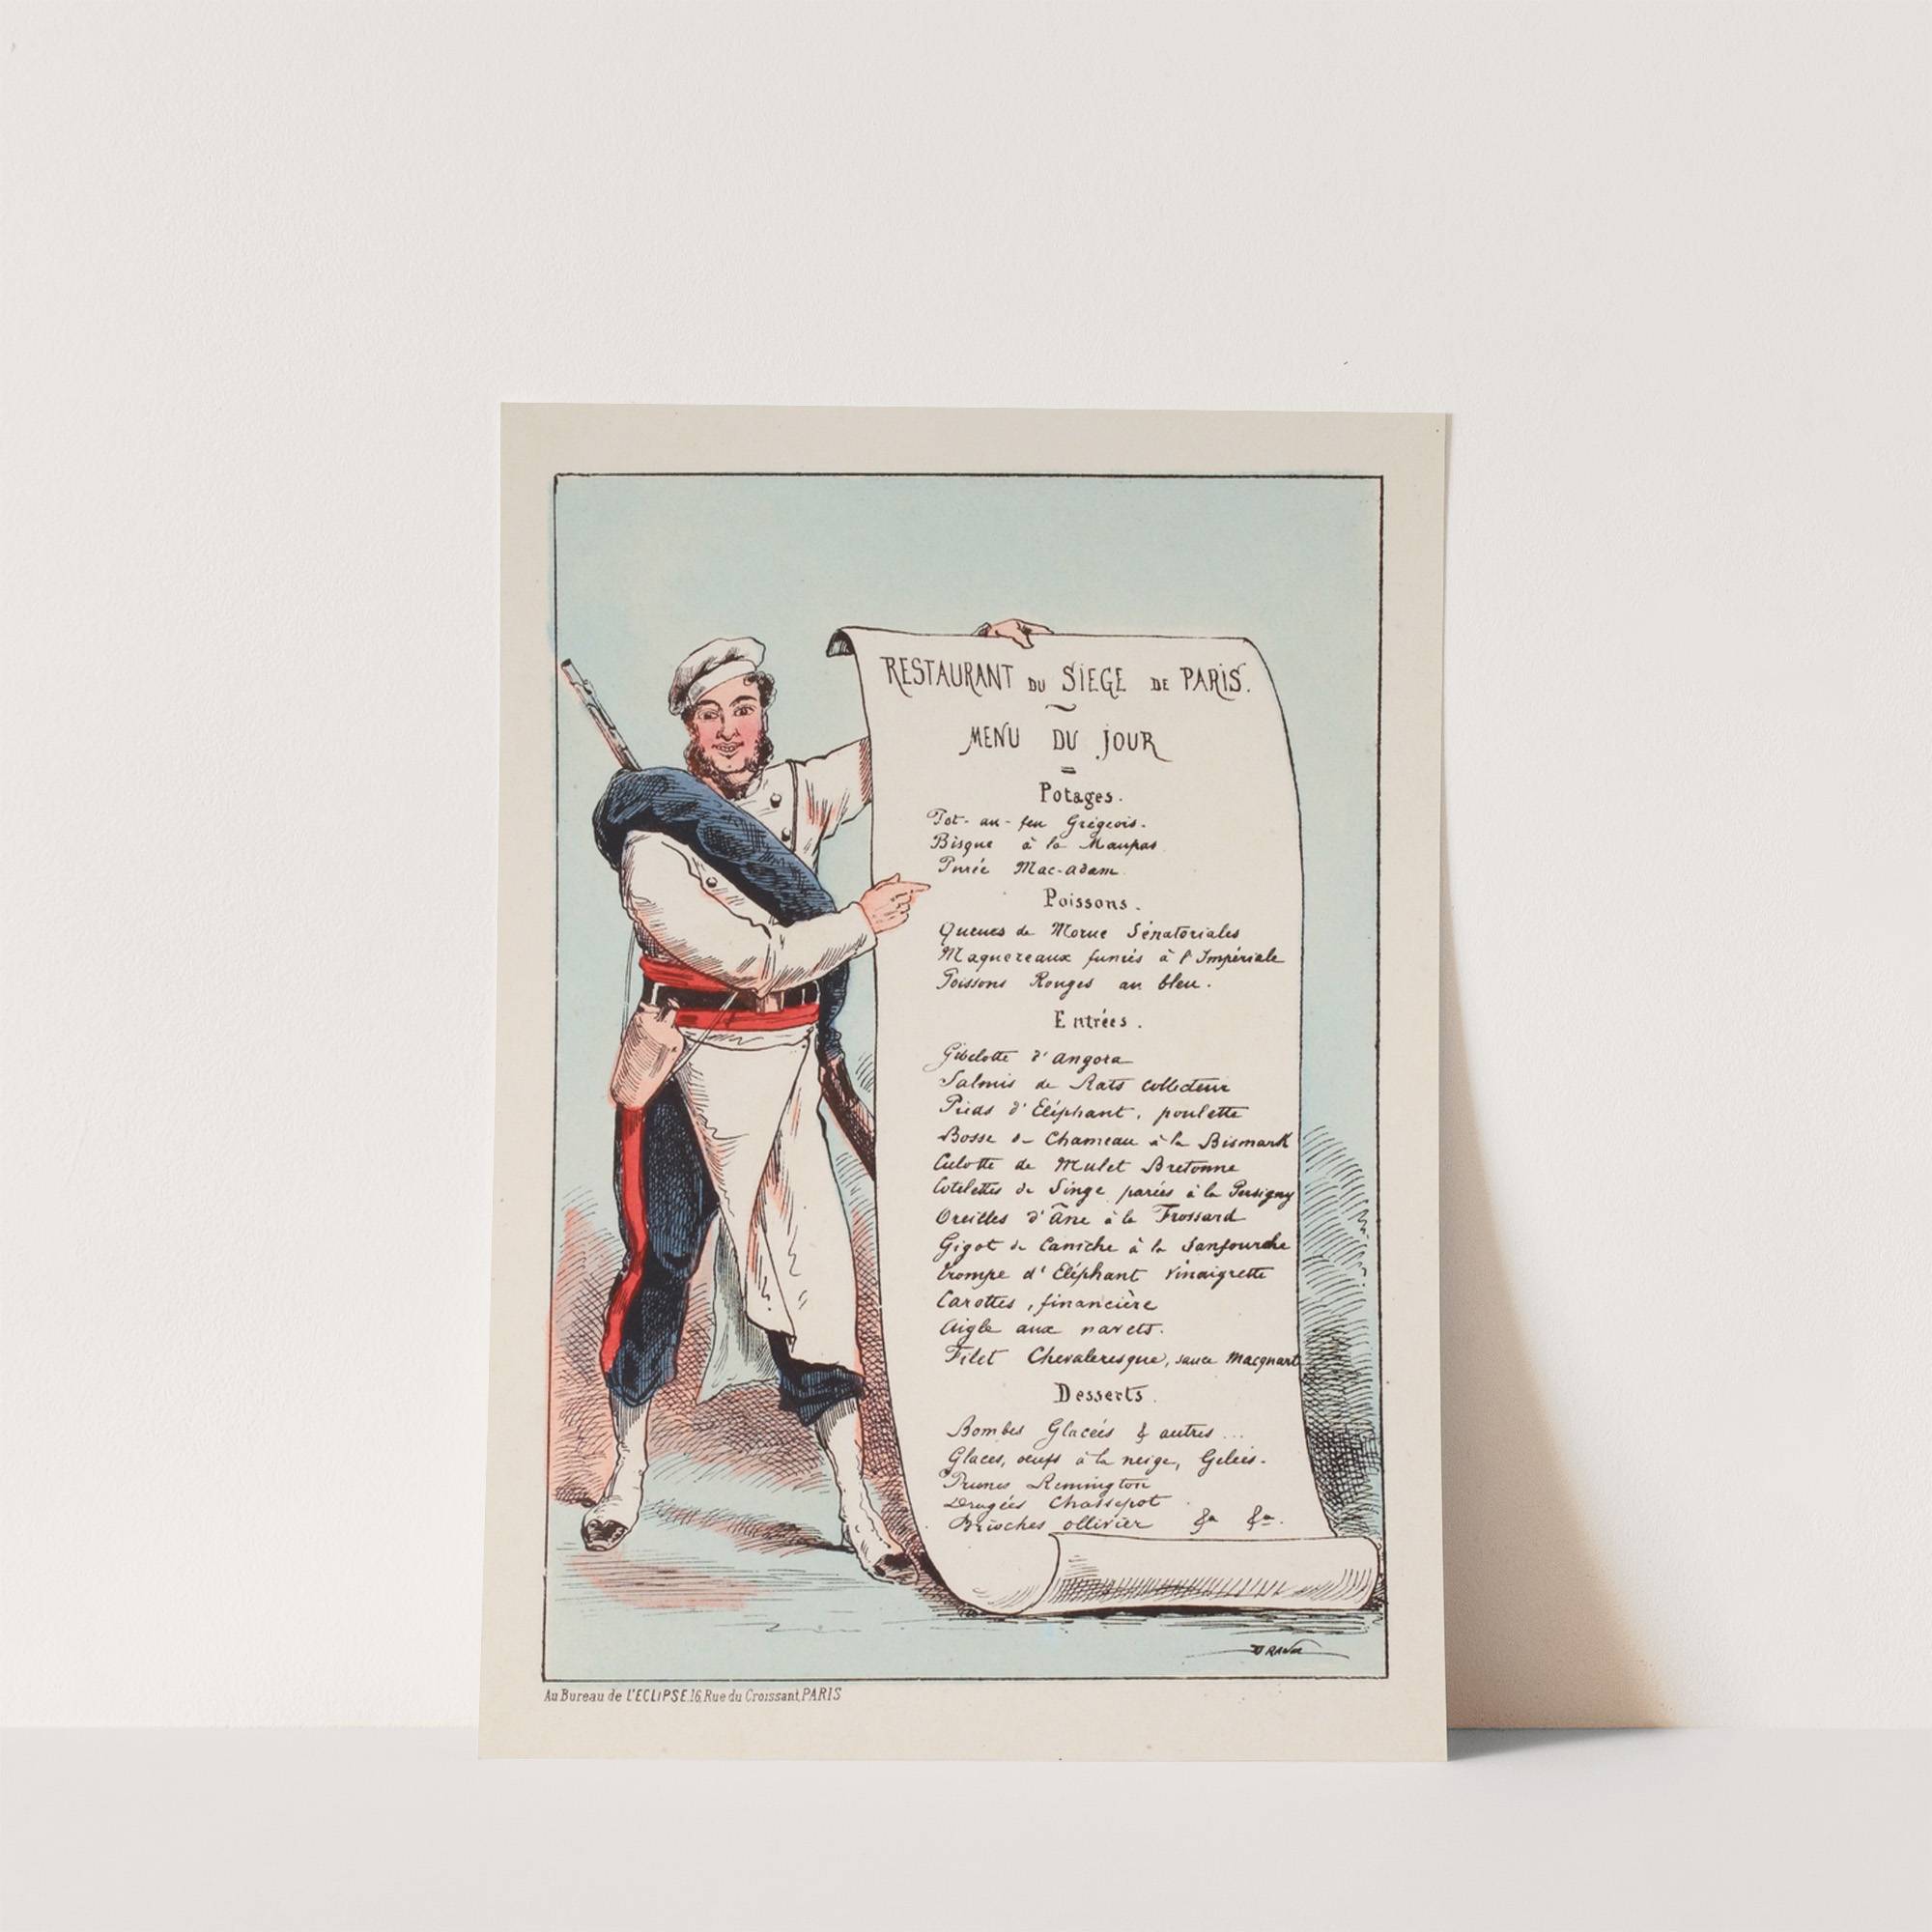 RESTAURANT DU SIEGE DE PARIS.
MENU DU JOUR
Potages.
Pot-au-feu Grégeois.
Bisque à la Maupas
Purée Mac-adam
Poissons.
Queues de Morue Sénatoriales
Maquereaux fumés à l'Impériale
Poissons Rouges au bleu.
Entrées.
Gibelotte d'angora
Salmis de Rats collecteur
Pieds d'Eléphant, poulette
Bosse de Chameau à la Bismark
Culotte de Mulet Bretonne
Cotelettes de Singe parées à la Persigny
Oreilles d'Âne à la Frossard
Gigot de Caniche à la Sanfourche
Trompe d'Eléphant vinaigrette
Carottes, financière
Aigle aux navets.
Filet Chevaleresque, sauce Macquart
Desserts.
Bombes Glacées & autres...
Glaces, oeufs à la neige, Gelées.
Prunes Remington
Dragées Chassepot
Brioches ollivier &a &a.
DRANER
Au Bureau de L'ECLIPSE.16.Rue du Croissant.PARIS